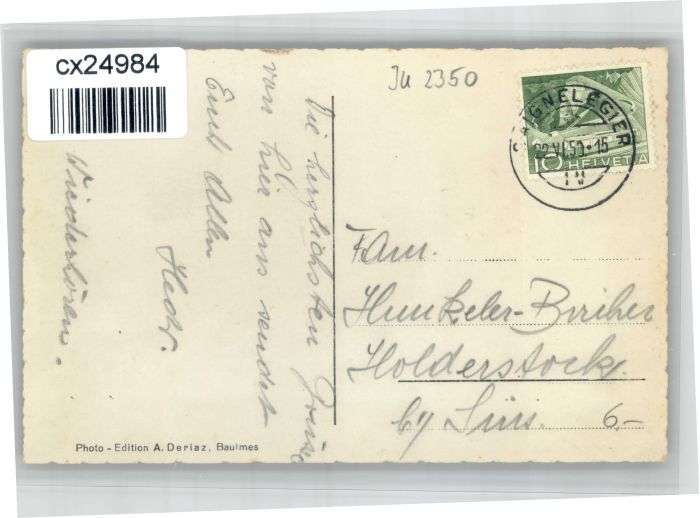 cx24984
Ju 2350
SAIGNELÉGIER
22.VI.50-15
10 HELVETIA
Die herzlichsten Grüsse
von hier aus sendet
Euch Allen
Hedy.
Wiederhören.
Fam.
Hunkeler-Bircher
Holderstock.
by Sins.
6.-
Photo - Edition A. Deriaz, Baulmes